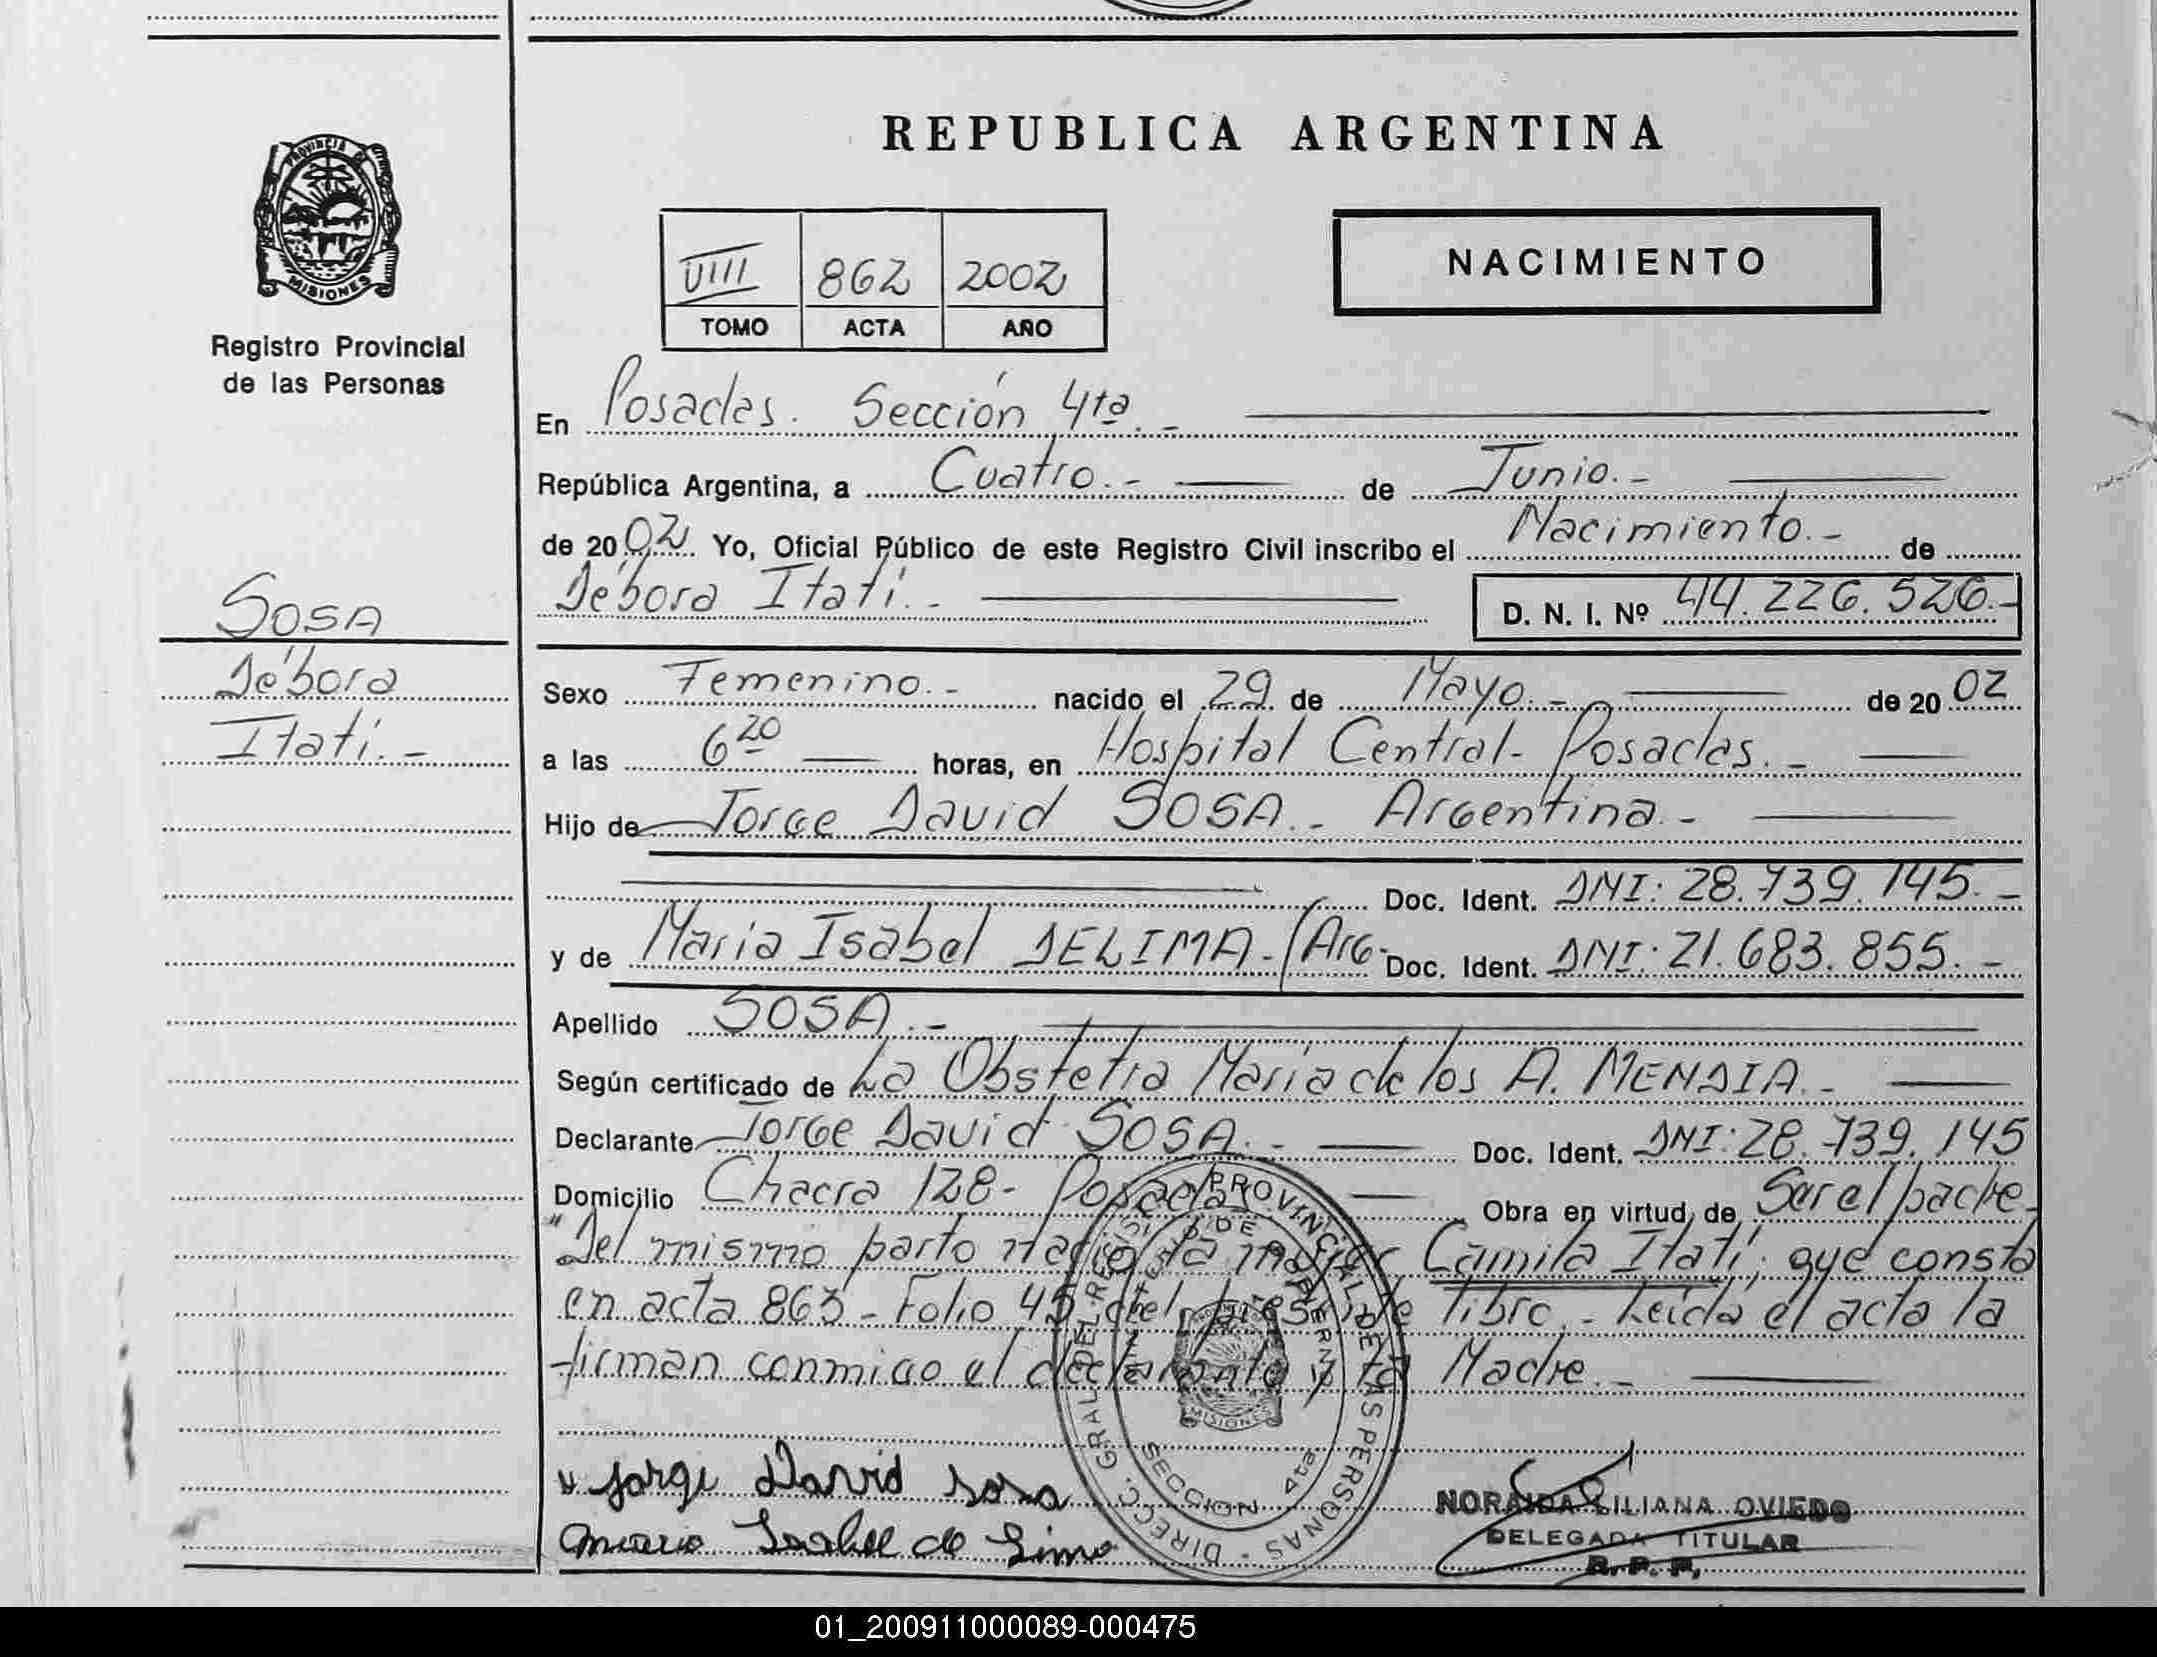 PROVINCIA DE
MISIONES
Registro Provincial
de las Personas
SOSA
Débora
Itatí.-
REPUBLICA ARGENTINA
VIII 862 2002
TOMO ACTA AÑO
NACIMIENTO
En Posadas. Sección 4ta.-
República Argentina, a Cuatro.- de Junio.-
de 2002. Yo, Oficial Público de este Registro Civil inscribo el Nacimiento.- de
Débora Itatí.- D. N. I. Nº 44.226.526.-
Sexo Femenino.- nacido el 29 de Mayo.- de 2002
a las 6 20 horas, en Hospital Central- Posadas.-
Hijo de Jorge David SOSA.- Argentina.-
Doc. Ident. DNI: 28.739.145.-
y de María Isabel DELIMA.-(Arg- Doc. Ident. DNI: 21.683.855.-
Apellido SOSA.-
Según certificado de La Obstetra María de los A. MENDIA.-
Declarante Jorge David SOSA.- Doc. Ident. DNI: 28.739.145
Domicilio Chacra 128- Posadas Obra en virtud de Ser el padre.
"Del mismo parto nació la mujer Camila Itatí, que consta
en acta 863 - Folio 45 del presente libro.- Leída el acta la
firman conmigo el declarante y la Madre.-
Jorge David Sosa
Maria Isabel de Lima
DIREC. GRAL. DEL REGISTRO PROVINCIAL DE LAS PERSONAS
MINISTERIO DE GOBIERNO
MISIONES
SECCION 4ta
NORAIDA LILIANA OVIEDO
DELEGADA TITULAR
R. P. P.
01_200911000089-000475